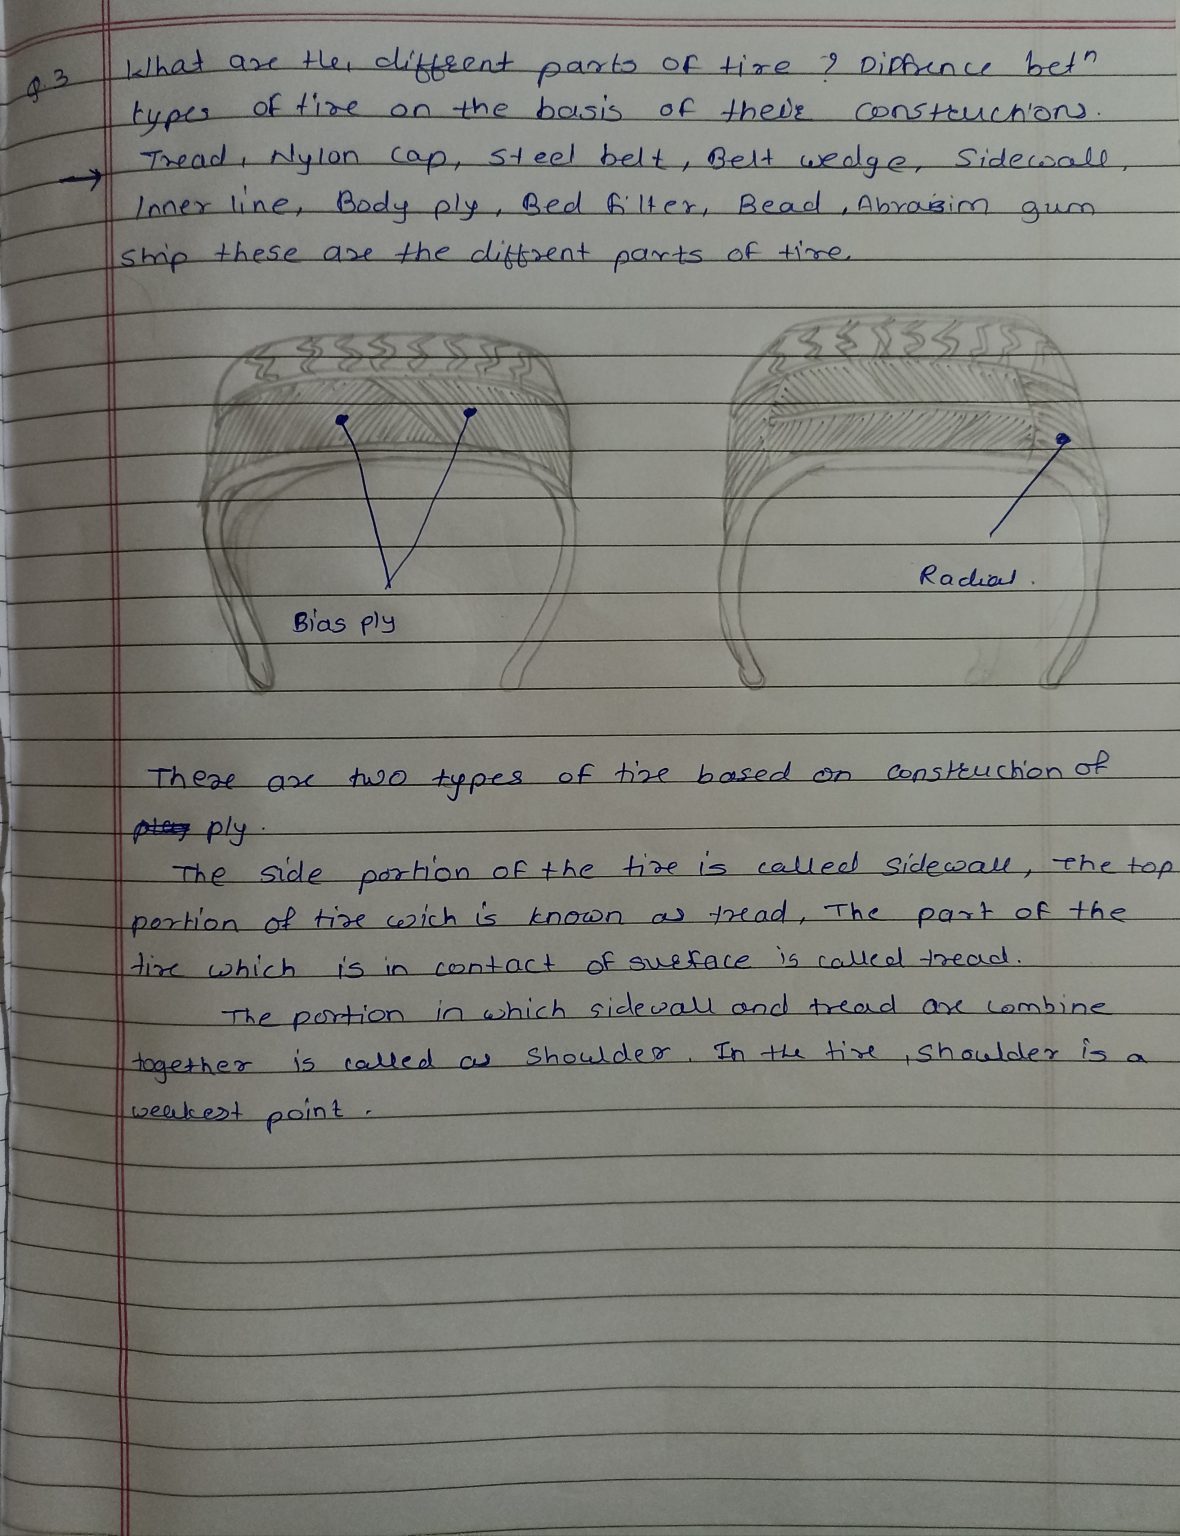 Q.3 What are the, different parts of tire ? Diffrence betn
types of tire on the basis of their constructions.
→ Tread, Nylon cap, steel belt, Belt wedge, Sidewall,
Inner line, Body ply, Bed filter, Bead, Abrasim gum
strip these are the diffrent parts of tire.
Bias ply
Radial.
There are two types of tire based on construction of
ply.
The side portion of the tire is called sidewall, the top
portion of tire wich is known as tread, The part of the
tire which is in contact of surface is called tread.
The portion in which sidewall and tread are combine
together is called as shoulder. In the tire, shoulder is a
weakest point.